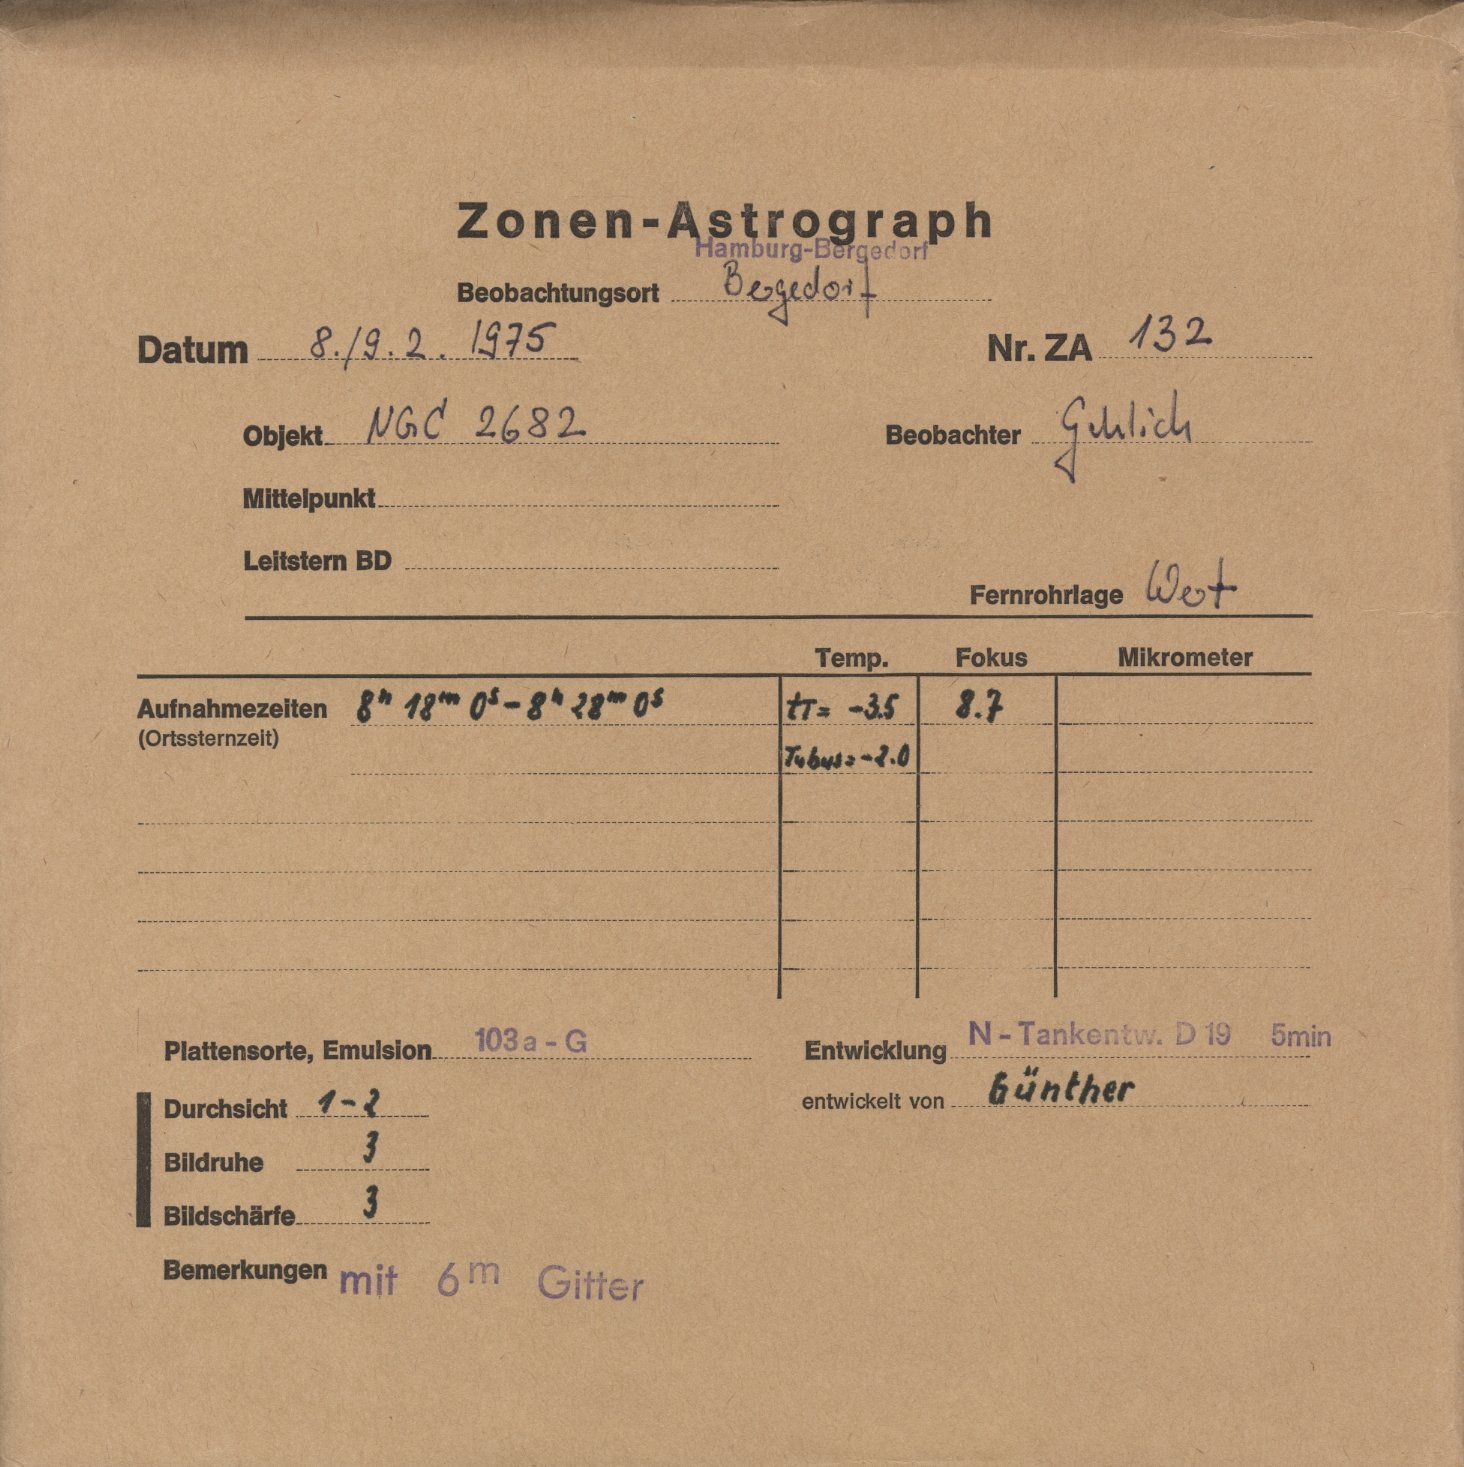 Zonen-Astrograph
Hamburg-Bergedorf
Beobachtungsort Bergedorf
Datum 8./9.2.1975 Nr. ZA 132
Objekt NGC 2682 Beobachter Gehlich
Mittelpunkt
Leitstern BD
Fernrohrlage West
Temp. Fokus Mikrometer
Aufnahmezeiten 8h 18m 0s - 8h 28m 0s tT = -3.5 8.7
(Ortssternzeit)
Tubus = -2.0
Plattensorte, Emulsion 103a-G Entwicklung N-Tankentw. D 19 5min
Durchsicht 1-2 entwickelt von Günther
Bildruhe 3
Bildschärfe 3
Bemerkungen mit 6m Gitter